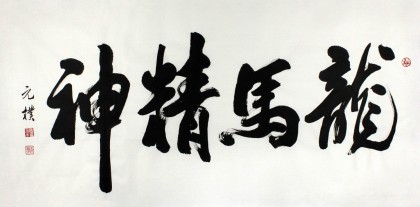 龍馬精神
元樸